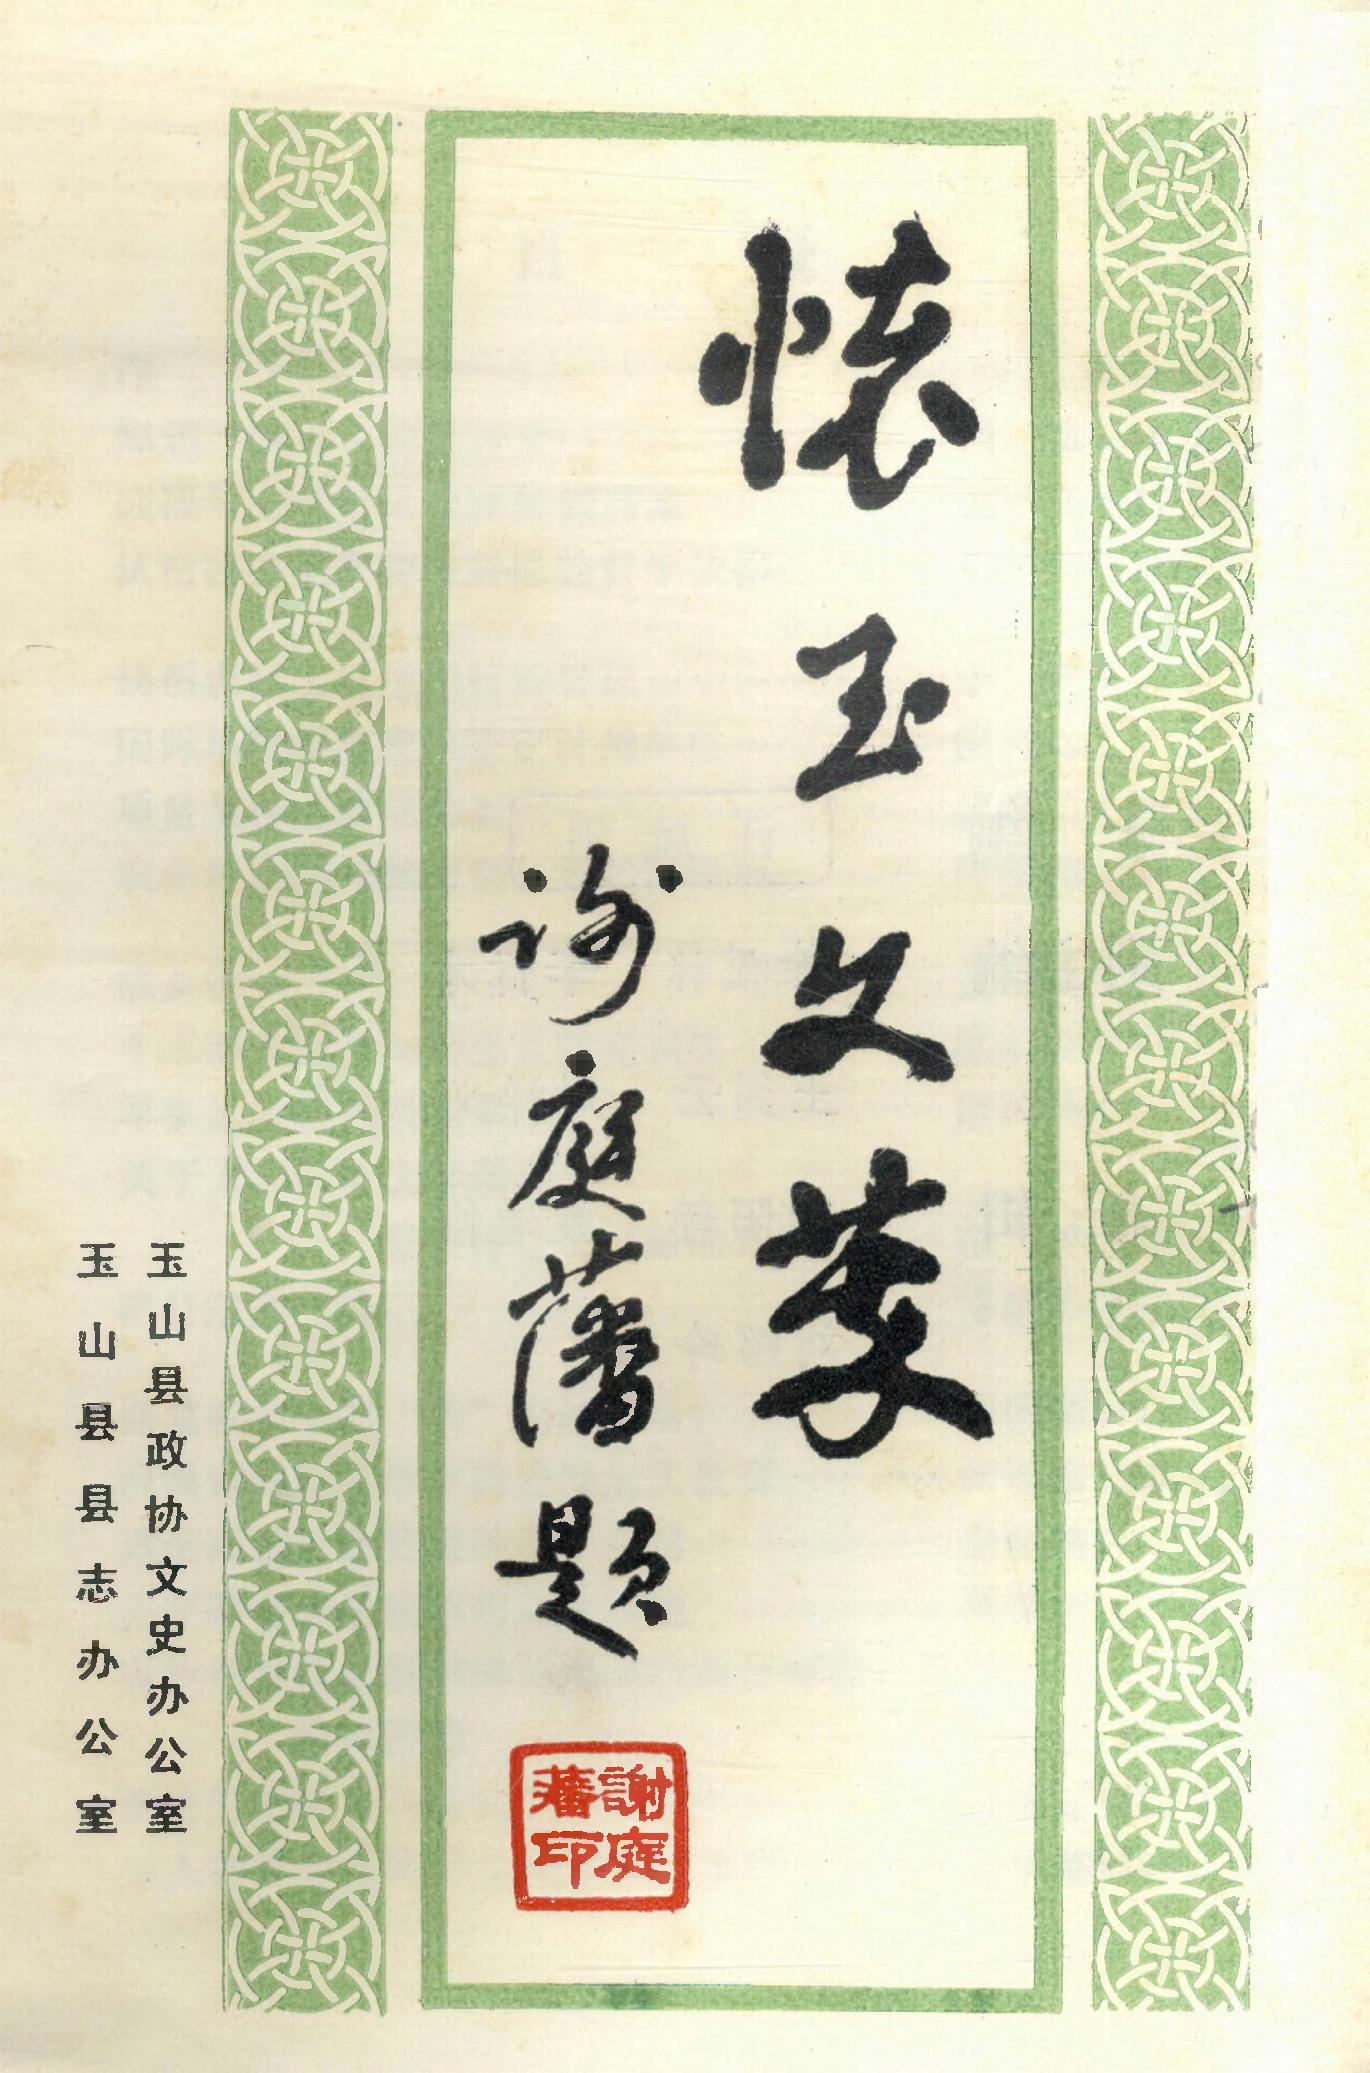 懷玉文萃
谢庭藩题
謝庭藩印
玉山县政协文史办公室
玉山县县志办公室